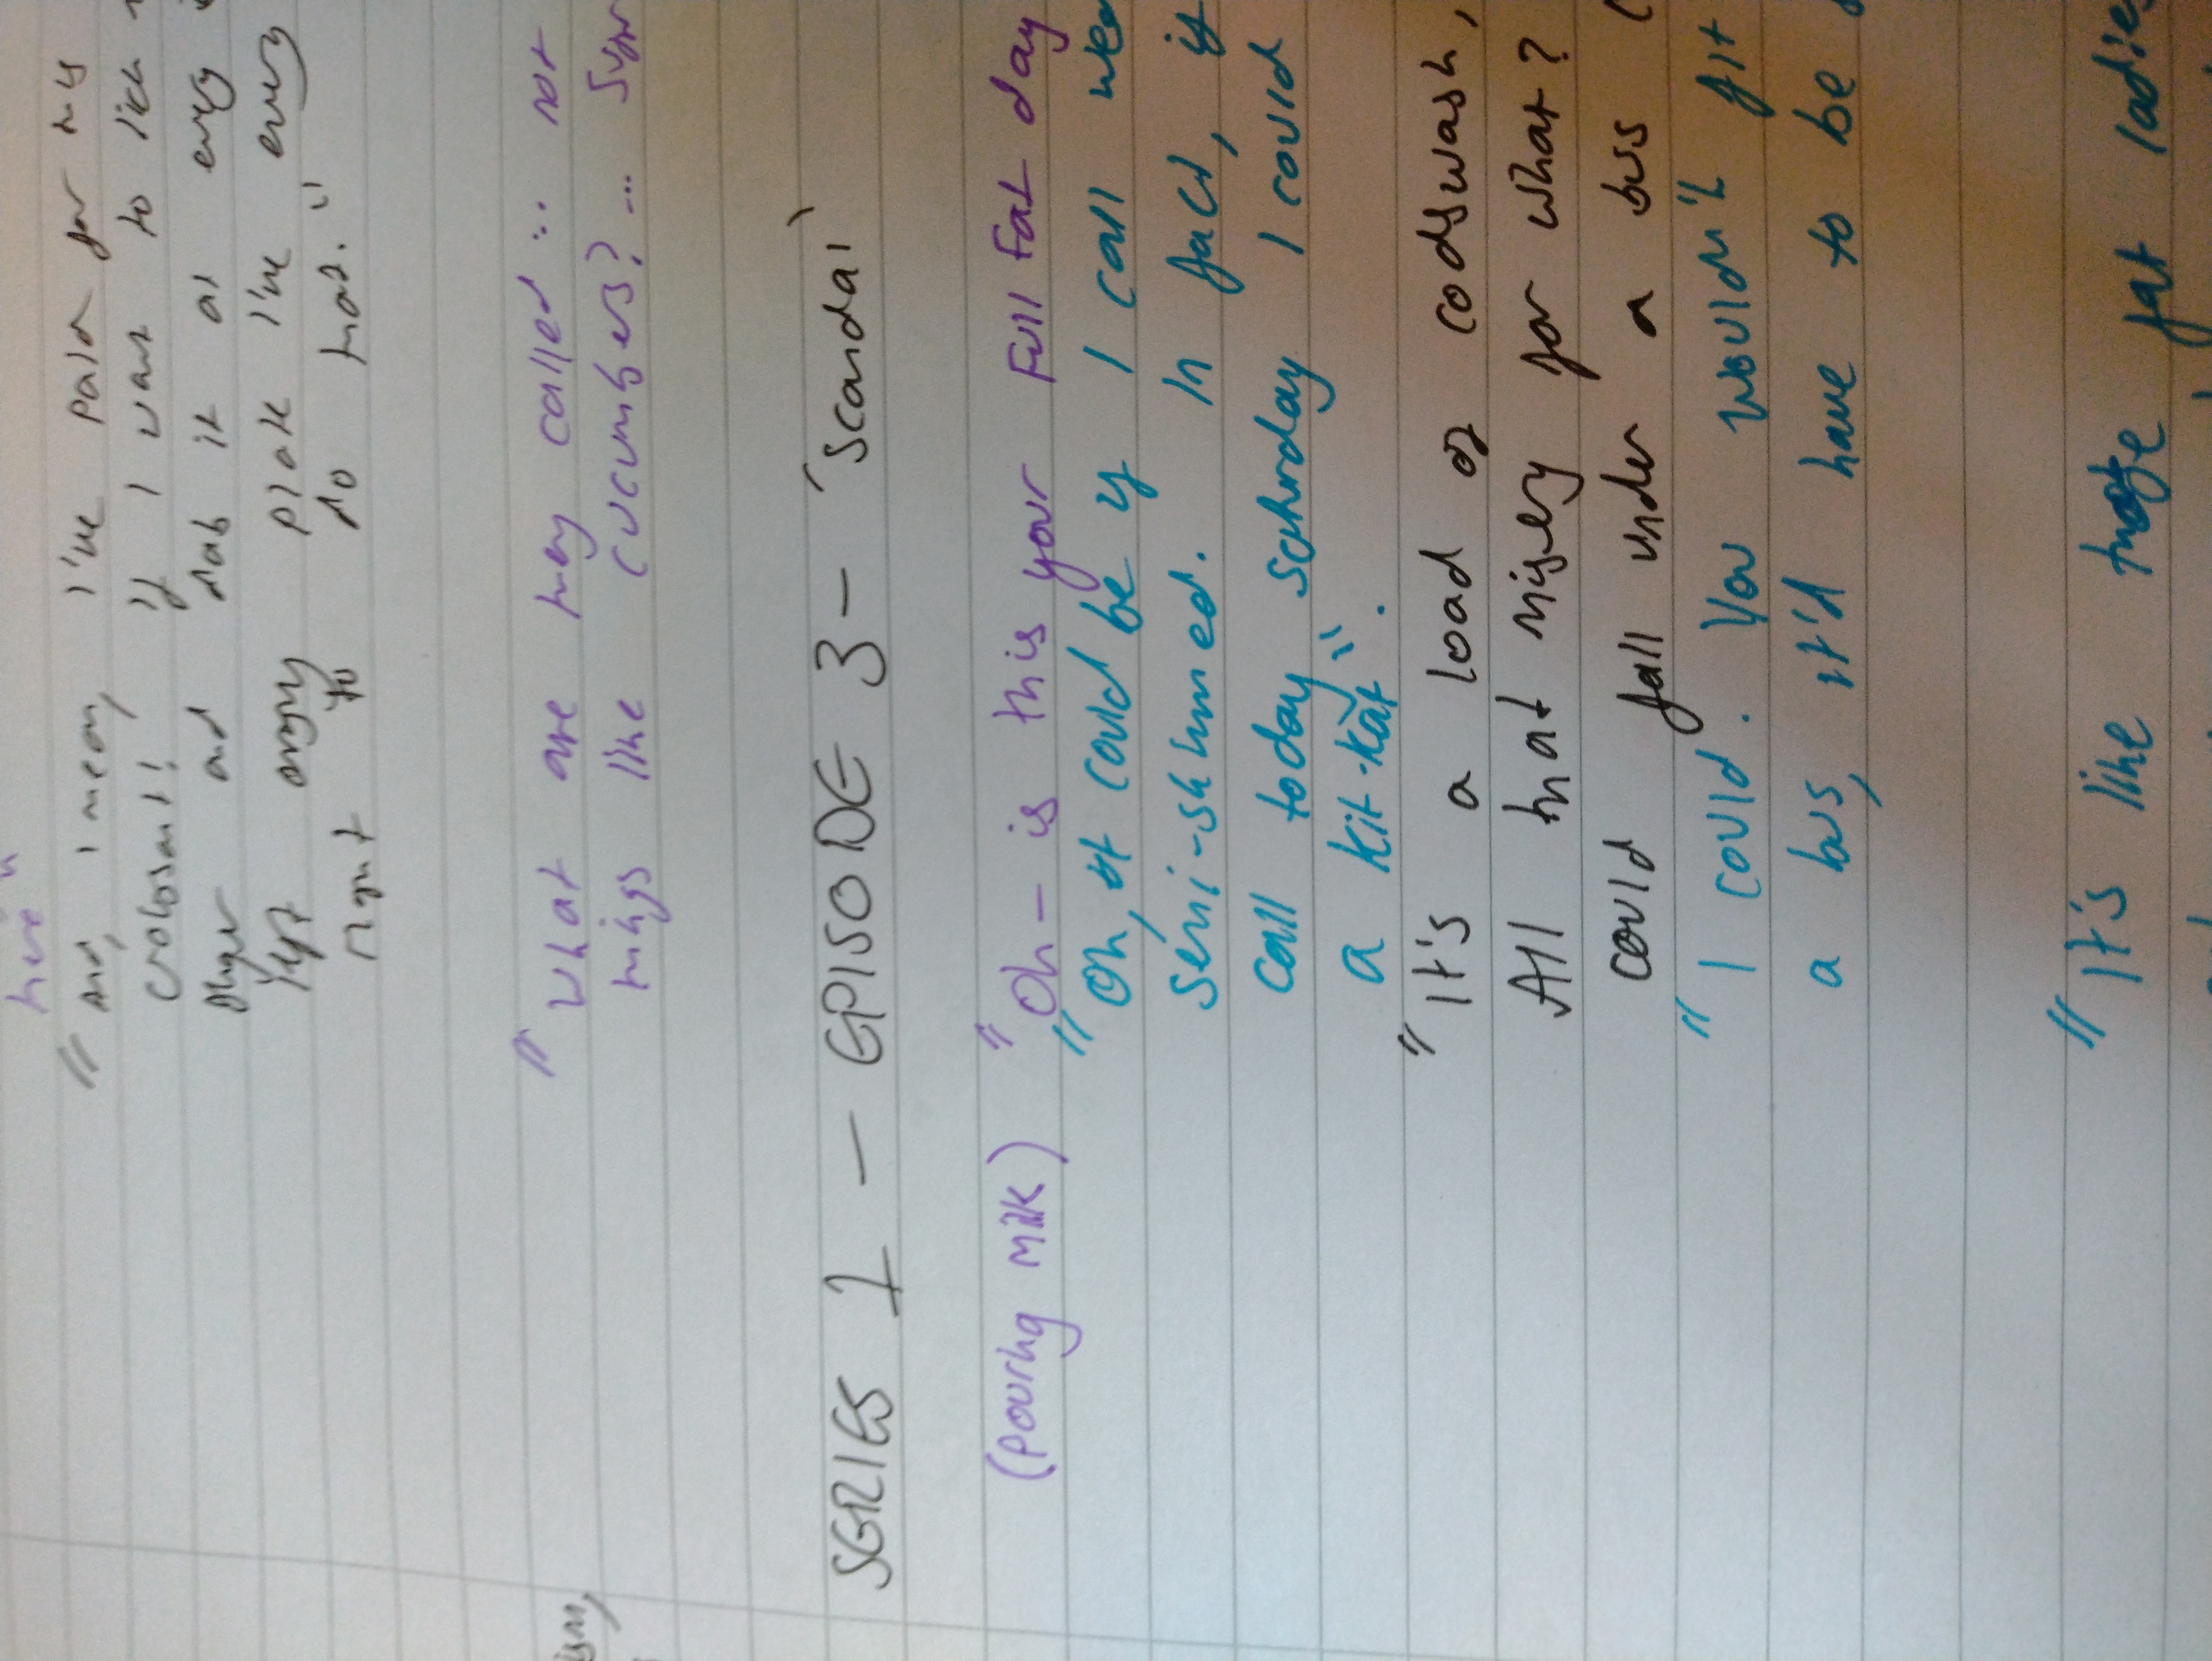 here"
"And, I mean, I've paid for this
croissant! If I want to lick
finger and dab it at every
left on my plate I've every
right to do that."
ism,
"What are they called... not
things like cucumbers?...
SERIES 1 — EPISODE 3 — 'Scandal'
(pouring milk) "Oh — is this your Full Fat day
"Oh, it could be if I call wed
semi-skimmed. In fact, if
call today saturday I could
a Kit-Kat".
"It's a load of codswash,
All that misery for what?
could fall under a bus (
"I could. You wouldn't fit
a bus, it'd have to be
"It's like those fat ladies